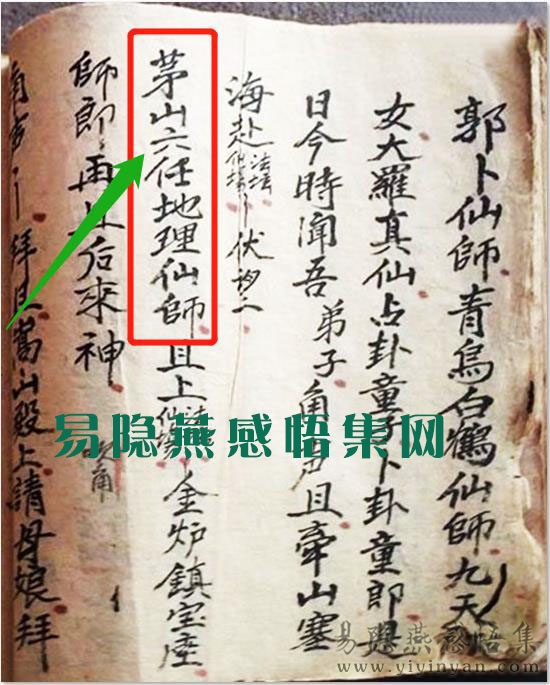 郭卜仙師青烏白鶴仙師九天
女大羅真仙占卦童子卜卦童郎
日今時聞吾弟子角声且牵山塞
海赴法坛伏望
茅山六任地理仙師且上金炉鎮宝座
師郎再
后來神
拜且嵩山殿上請母娘拜
易隐燕感悟集网
易隐燕感悟集
www.yivinyan.com